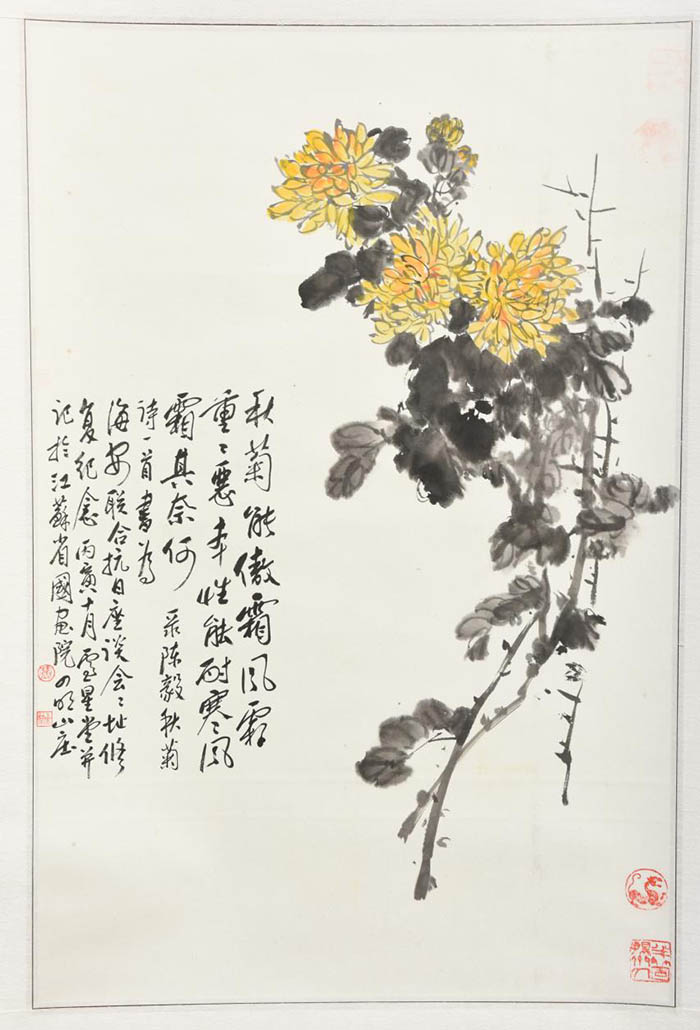 秋菊能傲霜风霜
重〻恶本性能耐寒风
霜其奈何 录陈毅秋菊
诗一首书为
海安联合抗日座谈会〻址修
复纪念 丙寅十月 星 并
记于江蘇省國画院四明山庄